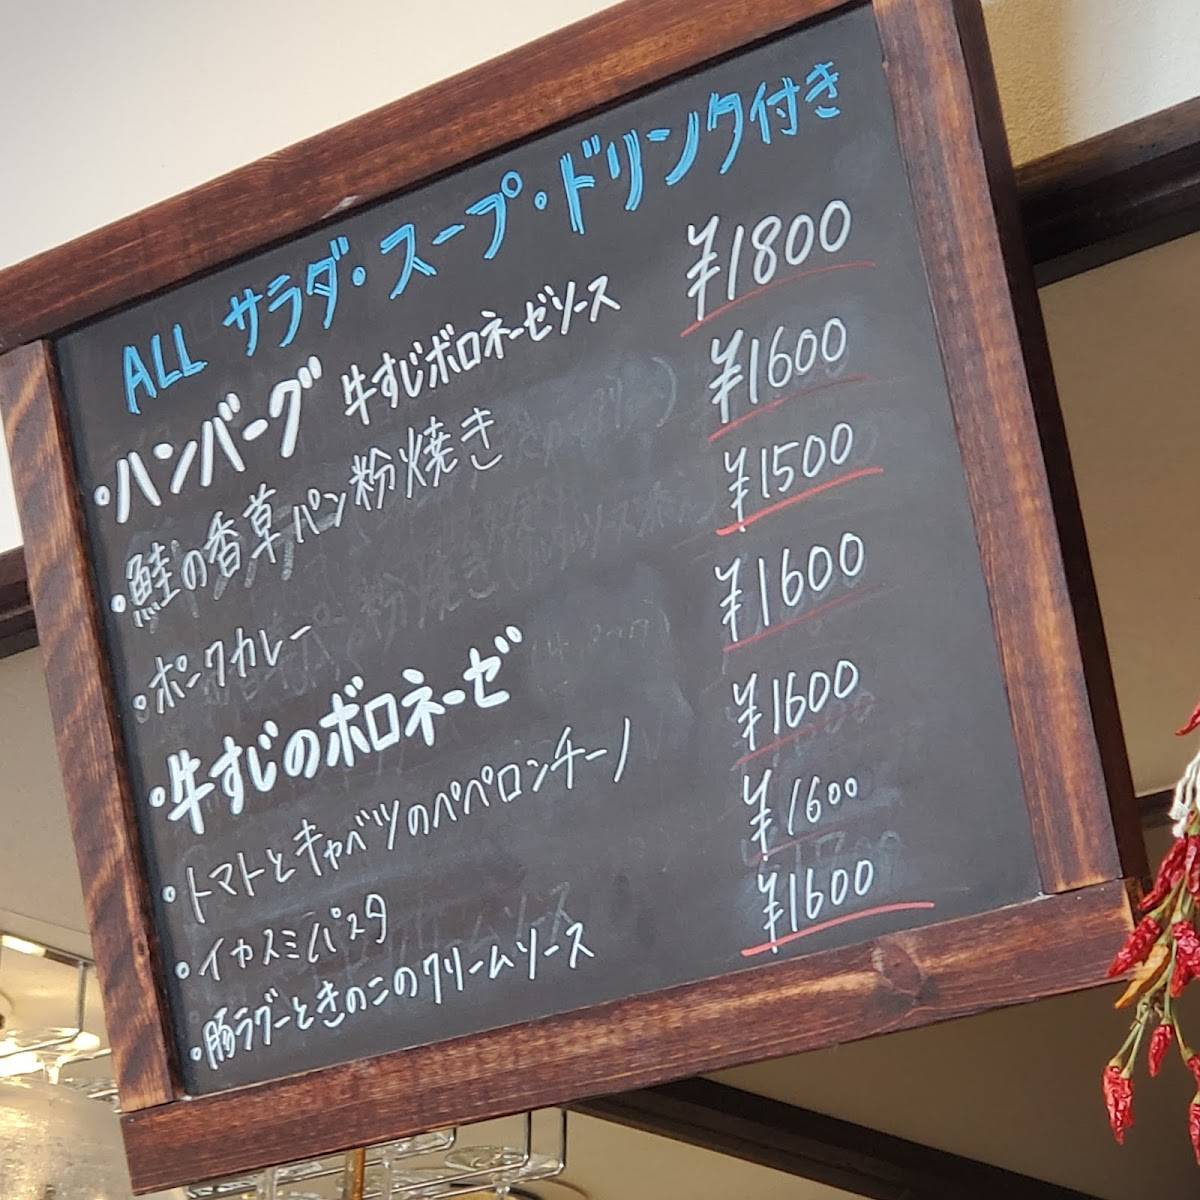 ALL サラダ・スープ・ドリンク付き
・ハンバーグ 牛すじボロネーゼソース ¥1800
・鮭の香草パン粉焼き ¥1600
・ポークカレー ¥1500
・牛すじのボロネーゼ ¥1600
・トマトとキャベツのペペロンチーノ ¥1600
・イカスミパスタ ¥1600
・豚ラグーときのこのクリームソース ¥1600